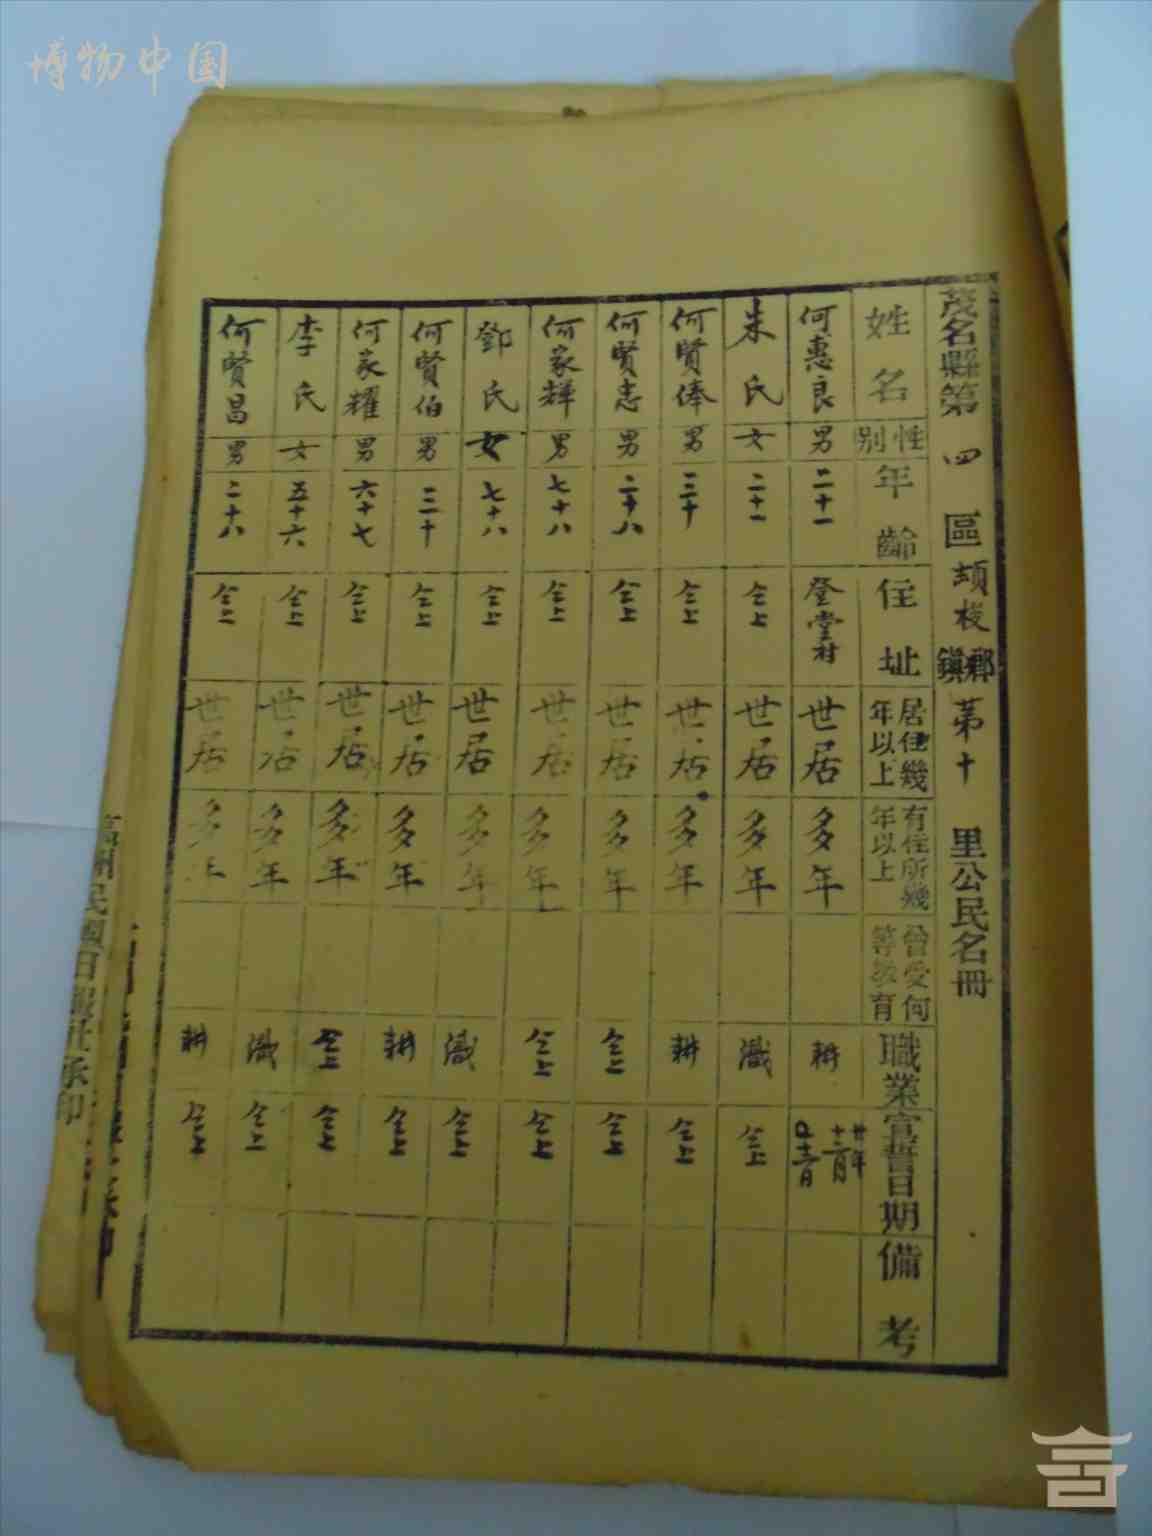 博物中国
茂名縣第四區頡棧鄉鎮第十里公民名冊
姓名 性別 年齡 住址 居住幾年以上 有住所幾年以上 曾受何等教育 職業 宣誓日期 備考
何惠良 男 二十一 登堂村 世居 多年 耕 廿年十二月
朱氏 女 二十一 仝上 世居 多年 織 仝上
何賢俸 男 三十 仝上 世居 多年 耕 仝上
何賢忠 男 二十八 仝上 世居 多年 仝上 仝上
何家輝 男 七十八 仝上 世居 多年 仝上 仝上
鄧氏 女 七十八 仝上 世居 多年 織 仝上
何賢伯 男 三十 仝上 世居 多年 耕 仝上
何家耀 男 六十七 仝上 世居 多年 仝上 仝上
李氏 女 五十六 仝上 世居 多年 織 仝上
何賢昌 男 二十八 仝上 世居 多年 耕 仝上
高州民國日報社承印